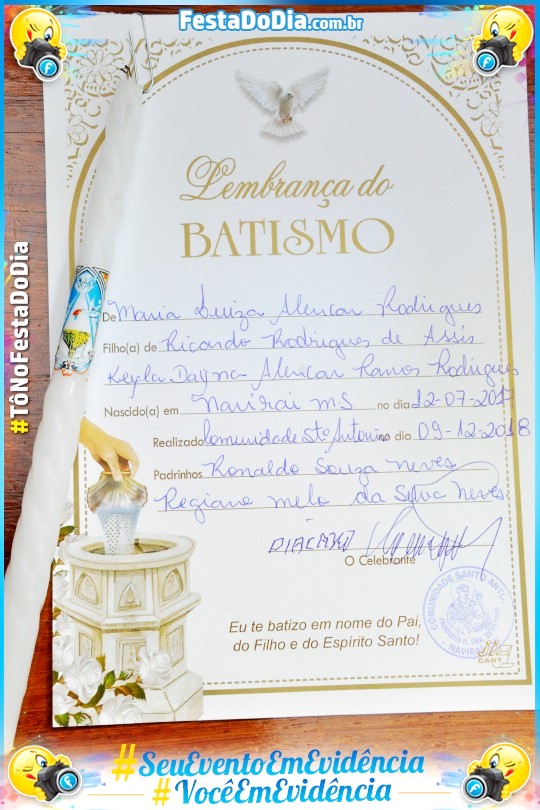 FestaDoDia.com.br
#TôNoFestaDoDia
Lembrança do
BATISMO
De Maria Luiza Alencar Rodrigues
Filho(a) de Ricardo Rodrigues de Assis
Keyla Dayna Alencar Ramos Rodrigues
Nascido(a) em Naviraí MS no dia 12-07-2017
Realizado Comunidade Stº Antonio no dia 09-12-2018
Padrinhos Ronaldo Souza Neves
Regiane Melo da Silva Neves
DIÁCONO
O Celebrante
COMUNIDADE SANTO ANTO
NAVIRAÍ
Eu te batizo em nome do Pai,
do Filho e do Espirito Santo!
CART
#SeuEventoEmEvidência
#VocêEmEvidência